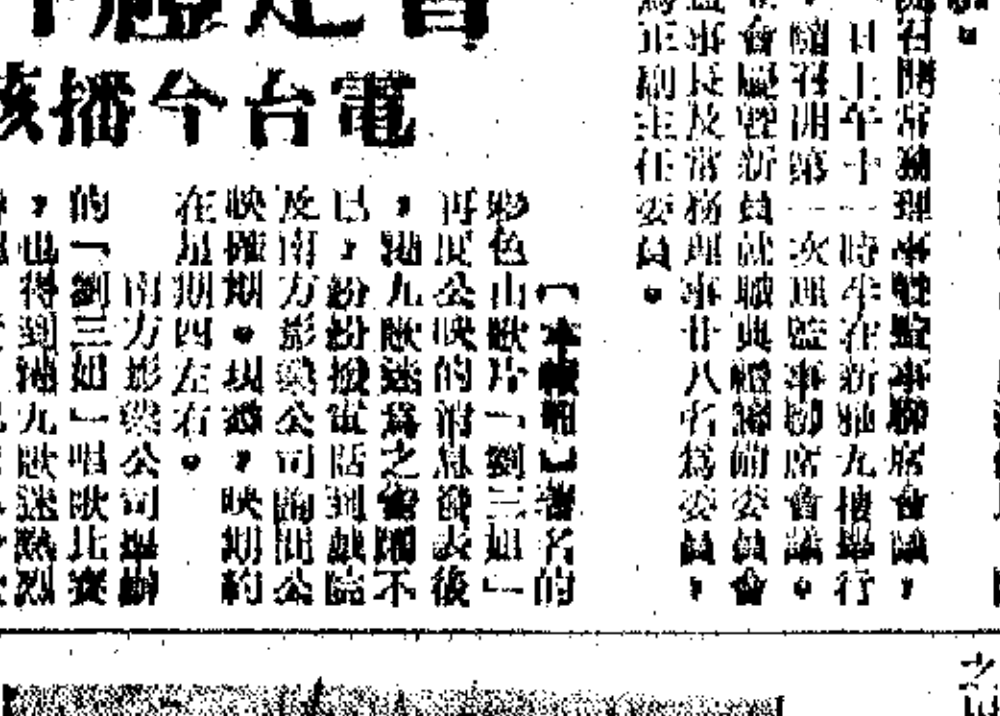 召開常務理事暨監事聯席會議，
日上午十一時半在新雅九樓舉行
隨召開第一次理監事聯席會議。
會慶暨新員就職典禮籌備委員會
監事長及常務理事廿八名為委員，
為正副主任委員。
電台今播該
【本報訊】著名的
彩色山歌片「劉三姐」
再度公映的消息發表後
，港九歌迷為之雀躍不
已，紛紛撥電話到戲院
及南方影業公司詢問公
映確期。現悉，映期約
在星期四左右。
南方影業公司舉辦
的「劉三姐」唱歌比賽
，也得到港九歌迷熱烈